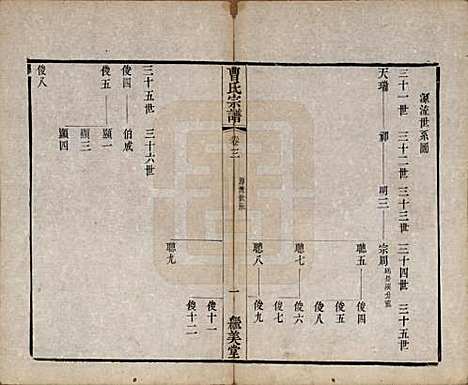 源流世系圖
三十一世 三十二世 三十三世 三十四世 三十五世
天瑞 祥 明三 宗周
聰五 俊四
俊五
聰七 俊六
俊八
俊七
聰八 俊九
曹氏宗譜
卷三
一 繼美堂
聰九 俊十一
俊十二
三十五世 三十六世
俊四 伯成
俊五 顯一
顯三
顯四
俊八